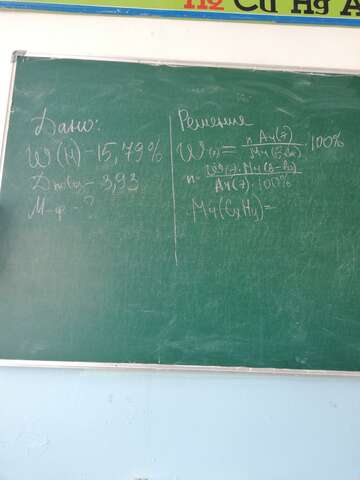 Cu Hg A
Дано:
W(H) - 15,79%
Dвозд - 3,93
М-ф - ?
Решение
W(э) = n·Ar(э) / Mr(в-ва) · 100%
n = W(э)·Mr(в-ва) / Ar(э)·100%
Mr(CxHy) =